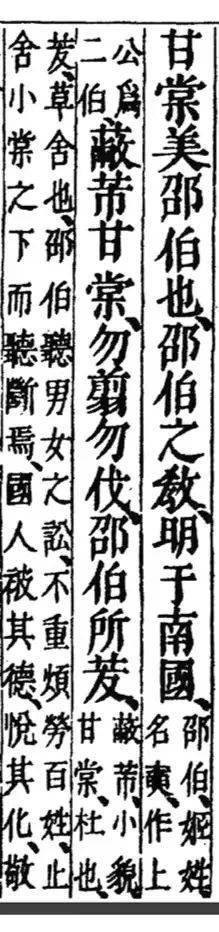 甘棠美邵伯也、邵伯之敎、明于南國、
邵伯、姬姓
名奭、作上
公爲
二伯、
蔽芾甘棠、勿翦勿伐、邵伯所茇、
蔽芾、小貌
甘棠、杜也、
茇、草舍也、邵伯聽男女之訟、不重煩勞百姓、止
舍小棠之下而聽斷焉、國人被其德、悅其化、敬